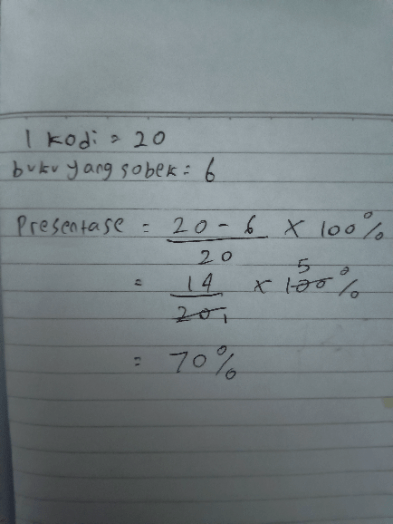 1 kodi = 20
buku yang sobek = 6
Presentase = 20 - 6 × 100%
20
= 14 × 100% 5
20 1
= 70%